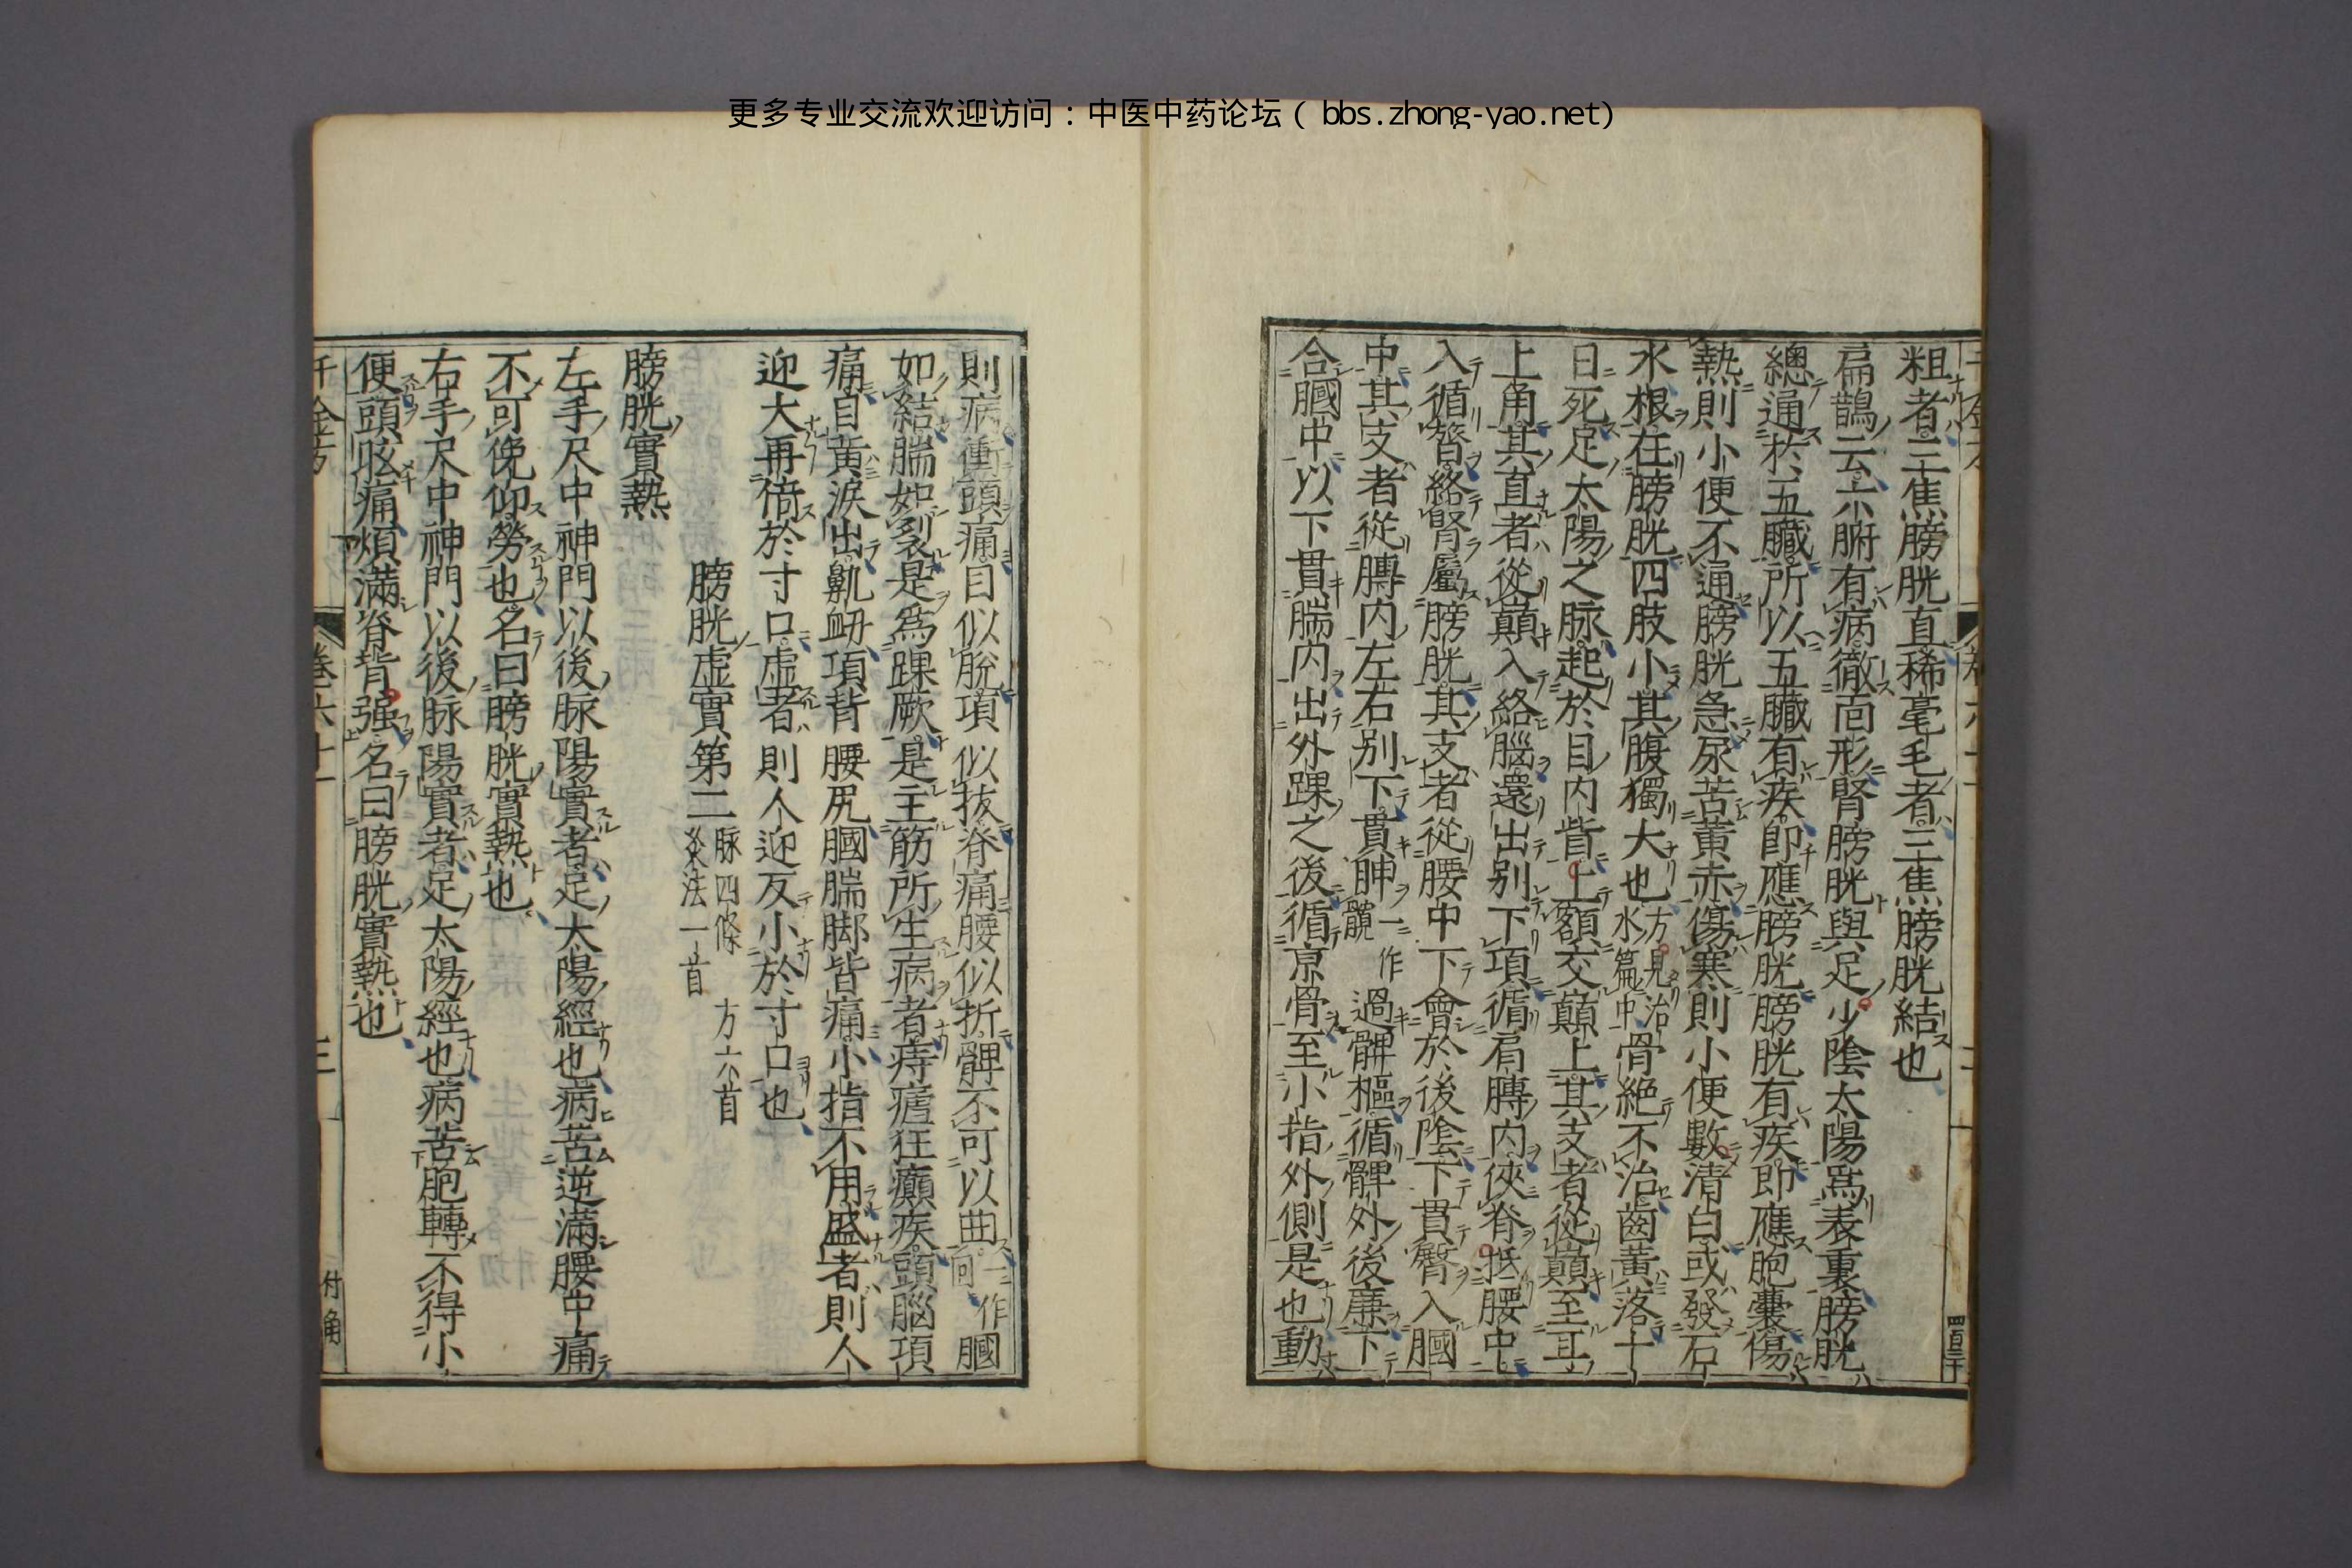 更多专业交流欢迎访问：中医中药论坛（bbs.zhong-yao.net）
粗者三焦膀胱直稀毫毛者三焦膀胱結也
扁鵲云六腑有病徹面形腎膀胱與足少陰太陽爲表裏膀胱
總通於五臟所以五臟有疾即應膀胱膀胱有疾即應胞囊傷
熱則小便不通膀胱急尿苦黃赤傷寒則小便數清白或發石
水根在膀胱四肢小其腹獨大也方見治水篇中骨絕不治齒黃落十
日死足太陽之脉起於目内眥上額交巔上其支者從巔至耳
上角其直者從巔入絡腦還出別下項循肩膊内俠脊抵腰中
入循膂絡腎屬膀胱其支者從腰中下會於後陰下貫臀入膕
中其支者從膊内左右別下貫胂一作髖過髀樞循髀外後廉下
合膕中以下貫腨内出外踝之後循京骨至小指外側是也動
則病衝頭痛目似脫項似拔脊痛腰似折髀不可以曲一作回膕
如結腨如裂是爲踝厥是主筋所生病者痔瘧狂癲疾頭腦項
痛目黃淚出鼽衄項背腰尻膕腨脚皆痛小指不用盛者則人
迎大再倍於寸口虛者則人迎反小於寸口也
膀胱虛實第二 脉四條 方六首 灸法一首
膀胱實熱
左手尺中神門以後脉陽實者足太陽經也病苦逆滿腰中痛
不可俛仰勞也名曰膀胱實熱也
右手尺中神門以後脉陽實者足太陽經也病苦胞轉不得小
便頭眩痛煩滿脊背强名曰膀胱實熱也
千金方 卷六十一 三 付角